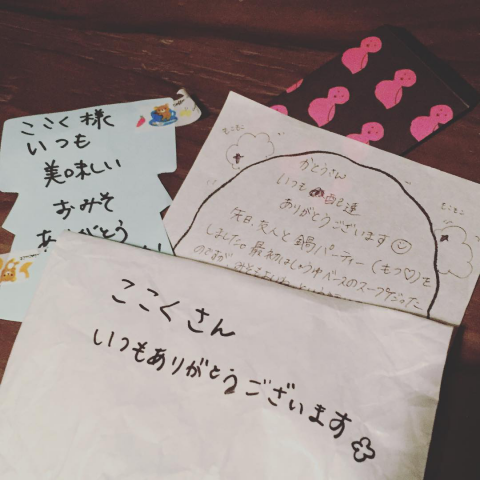 ここく様
いつも
美味しい
おみそ
ありがとう
もこもこ
かとうさん
いつも配達
ありがとうございます
もこもこ
先日、友人と鍋パーティー(もつ♡)を
しました。最初はしょうゆベースのスープだった
のですが
ここくさん
いつもありがとうございます